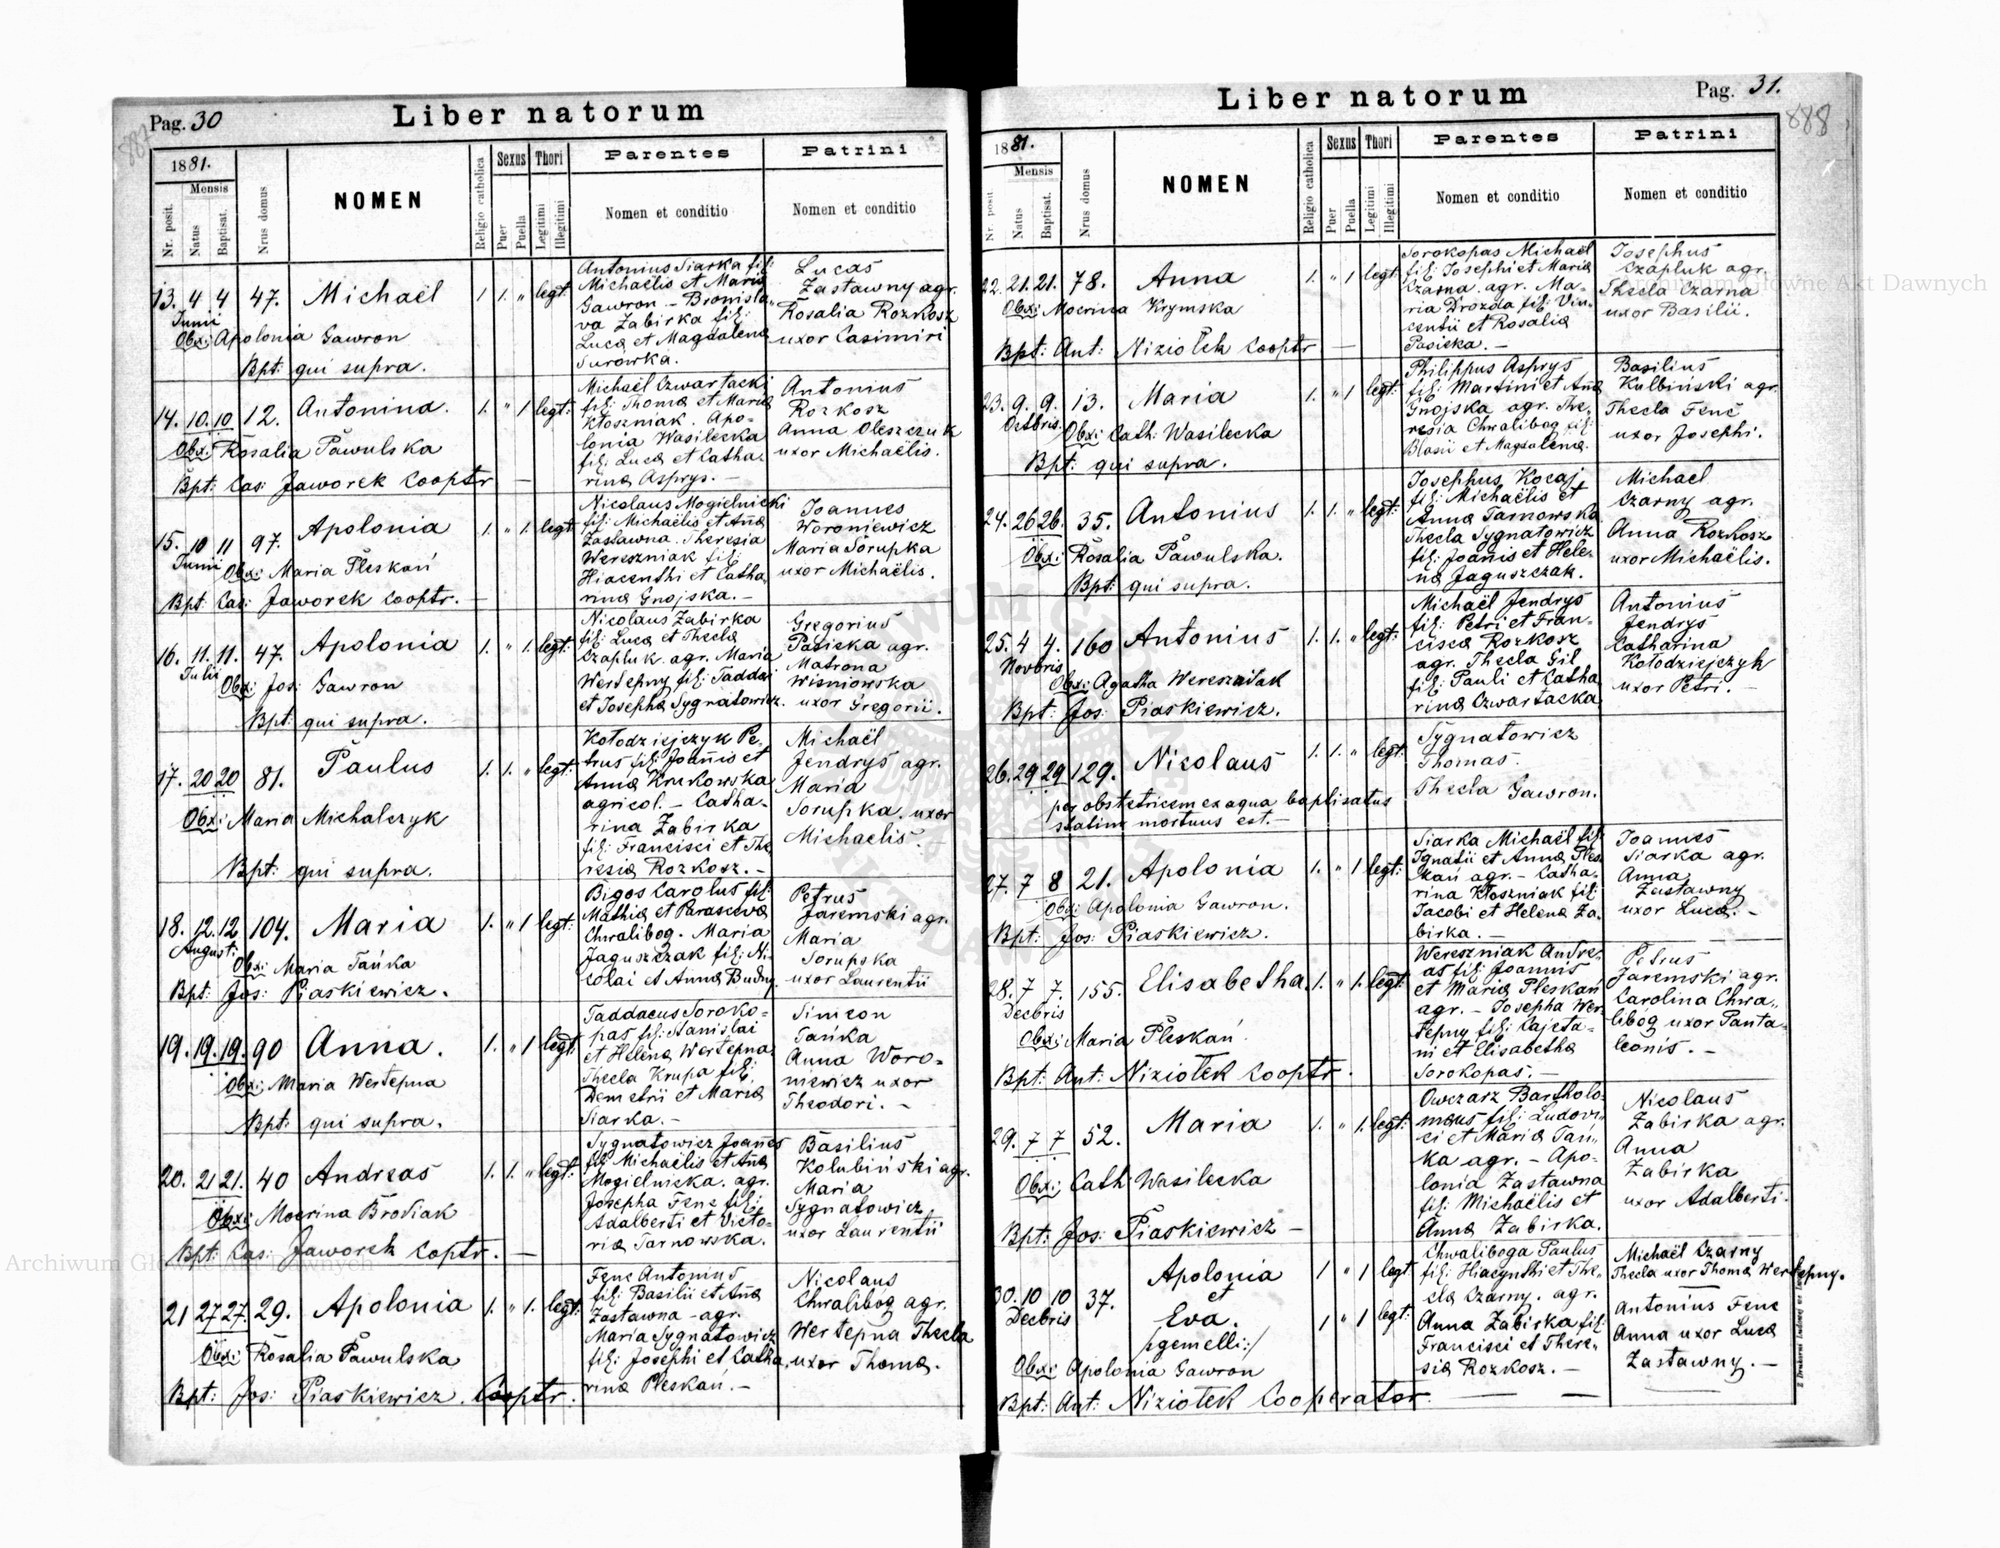 Pag. 30
Liber natorum
1881.
Mensis
Nr. posit.
Natus
Baptisat.
Nrus domus
NOMEN
Religio catholica
Sexus
Puer
Puella
Thori
Legitimi
Illegitimi
Parentes
Nomen et conditio
Patrini
Nomen et conditio
13. 4 4 47. Michaël 1 1. " legt:
Junii
Obx: Apolonia Gawron
Bpt: qui supra.
Antonius Siarka fil:
Michaëlis et Maria
Gawron - Bronisla-
va Zabirka fil:
Luca et Magdalena
Surowka.
Lucas
Zastawny agr.
Rosalia Rozkosz
uxor Casimiri
14. 10. 10 12. Antonina. 1. " 1 legt:
Obx: Rosalia Pawulska
Bpt: Cas: Jaworek Cooptr
Michaël Czwartacki
fil: Thoma et Maria
Kłoszniak. Apo-
lonia Wasilecka
fil: Luca et Catha-
rina Asprys. -
Antonius
Rozkosz
Anna Oleszczuk
uxor Michaëlis.
15. 10 11 97. Apolonia 1. " 1 legt:
Junii
Obx: Maria Pleskań
Bpt: Cas: Jaworek Cooptr. -
Nicolaus Mogielnicki
fil: Michaëlis et Anna
Zastawna. Theresia
Wereszniak fil:
Hiacenthi et Catha
rina Gnojska. -
Joannes
Woroniewicz
Maria Sorupka
uxor Michaëlis.
16. 11. 11. 47. Apolonia 1. " 1. legt:
Julii
Obx: Jos: Gawron
Bpt: qui supra.
Nicolaus Zabirka
fil: Luca et Thecla
Czapluk. agr. Maria
Wertepny fil: Taddai
et Josepha Sygnatowicz.
Gregorius
Pasieka agr.
Matrona
Wisniowska
uxor Gregorii.
17. 20 20 81. Paulus 1. 1. " legt:
Obx: Maria Michalczyk
Bpt: qui supra.
Kołodziejczyk Pe-
trus fil: Joannis et
Anna Krukowska
agricol. - Catha-
rina Zabirka
fil: Francisci et The
resia Rozkosz. -
Michaël
Jendrys agr.
Maria
Sorupka. uxor
Michaelis.
18. 12. 12 104. Maria 1. " 1 legt:
Augusti
Obx: Maria Tańka
Bpt: Jos: Piaskiewicz.
Bigos Carolus fil:
Mathia et Parasceva
Chwalibog. Maria
Jaguszczak fil: Ni-
colai et Anna Budny.
Petrus
Jaremski agr.
Maria
Sorupska
uxor Laurentii
19. 19. 19. 90 Anna. 1. " 1 legt:
Obx: Maria Wertepna
Bpt: qui supra.
Taddaeus Soroko-
pas fil: Stanislai
et Helena Wertepna.
Thecla Krupa fil:
Demetrii et Maria
Siarka. -
Simeon
Tańka
Anna Woro-
niewicz uxor
Theodori. -
20. 21 21. 40 Andreas 1. 1. " legt:
Obx: Mocrina Brodiak
Bpt: Cas: Jaworek Coptr. -
Sygnatowicz Joannes
fil Michaëlis et Anna
Mogielnicka. agr.
Josepha Fenc fil:
Adalberti et Victo-
ria Tarnowska.
Basilius
Kolubiński agr.
Maria
Sygnatowicz
uxor Laurentii
21 27 27. 29. Apolonia 1. " 1. legt:
Obx: Rosalia Pawulska
Bpt: Jos: Piaskiewicz. Cooptr.
Fenc Antonius
fil: Basilii et Anna
Zastawna - agr.
Maria Sygnatowicz
fil: Josephi et Catha
rina Pleskań. -
Nicolaus
Chwalibog agr.
Wertepna Thecla
uxor Thoma.
Pag. 31.
888
Liber natorum
1881.
Mensis
Nr. posit.
Natus
Baptisat.
Nrus domus
NOMEN
Religio catholica
Sexus
Puer
Puella
Thori
Legitimi
Illegitimi
Parentes
Nomen et conditio
Patrini
Nomen et conditio
22. 21. 21. 78. Anna 1. " 1 legt:
Obx: Mocrina Krymska
Bpt: Ant: Niziołek Cooptr -
Sorokopas Michaël
fil: Josephi et Maria
Czarna. agr. Ma-
ria Drozda fil: Vin-
centii et Rosalia
Pasieka. -
Josephus
Czapluk agr.
Thecla Czarna
uxor Basilii.
23. 9. 9. 13. Maria 1. " 1 legt:
Octbris
Obx: Cath: Wasilecka
Bpt: qui supra.
Philippus Asprys
fil: Martini et Anna
Gnojska agr. The-
resia Chwalibog fil:
Blasii et Magdalena.
Basilius
Kulbinski agr.
Thecla Fenc
uxor Josephi.
24. 26 26. 35. Antonius 1. 1. " legt:
Obx: Rosalia Pawulska.
Bpt: qui supra.
Josephus Kocaj
fil: Michaëlis et
Anna Tarnowska
Thecla Sygnatowicz
fil: Joannis et Hele-
na Jaguszczak.
Michael
Czarny agr.
Anna Rozkosz
uxor Michaëlis.
25. 4 4. 160 Antonius 1. 1. " legt:
Novbris
Obx: Agatha Wereszniak
Bpt: Jos: Piaskiewicz.
Michaël Jendrys
fil: Petri et Fran-
cisca Rozkosz
agr. Thecla Gil
fil: Pauli et Catha
rina Czwartacka
Antonius
Jendrys
Catharina
Kołodziejczyk
uxor Petri. -
26. 29 29 129. Nicolaus 1. 1. " legt:
per obstetricem ex aqua baptisatus
statim mortuus est. -
Sygnatowicz
Thomas.
Thecla Gawron.
27. 7 8 21. Apolonia 1. " 1 legt:
Obx: Apolonia Gawron.
Bpt: Jos: Piaskiewicz.
Siarka Michaël fil:
Ignatii et Anna Ples
kań agr. - Catha-
rina Kłoszniak fil:
Jacobi et Helena Za-
birka. -
Joannes
Siarka agr.
Anna
Zastawny
uxor Luca. -
28. 7 7. 155. Elisabetha. 1. " 1. legt:
Decbris
Obx: Maria Pleskań
Bpt: Ant: Niziołek Cooptr.
Wereszniak Andre-
as fil: Joannis
et Maria Pleskań
agr. - Josepha Wer
tepny fil: Cajeta-
ni et Elisabetha
Sorokopas. -
Petrus
Jaremski agr.
Carolina Chwa-
libóg uxor Panta-
leonis. -
29. 7 7 52. Maria 1. " 1. legt:
Obx: Cath Wasilecka
Bpt: Jos: Piaskiewicz -
Owczarz Bartholo-
maus fil: Ludovi-
ci et Maria Tań-
ka agr. - Apo-
lonia Zastawna
fil: Michaëlis et
Anna Zabirka.
Nicolaus
Zabirka agr.
Anna
Zabirka
uxor Adalberti.
30. 10 10 37. Apolonia 1 " 1 legt
Decbris
et
Eva. 1 " 1 legt:
/:gemelli:/
Obx: Apolonia Gawron
Bpt: Ant: Niziołek Cooperator.
Chwaliboga Paulus
fil: Hiacynthi et The-
cla Czarny. agr.
Anna Zabirka fil:
Francisci et There-
sia Rozkosz. -
Michaël Czarny
Thecla uxor Thoma Wertepny.
Antonius Fenc
Anna uxor Luca
Zastawny. -
Archiwum Główne Akt Dawnych
Archiwum Główne Akt Dawnych